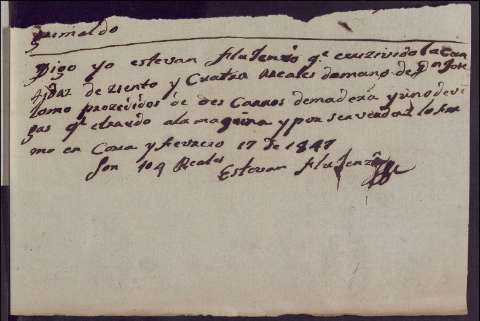 Grimaldo
Digo yo estevan fladenzio qe e rrezivido la can
tidaz de ziento y Cuatro Reales de mano de Dn Jose
Como prozedidos de dos Carros de madera y uno de vi
gas qe e traido a la maquina y por ser verdaz lo fir
mo en Coria y fevrero 17 de 1847
Son 104 Reales
Estevan